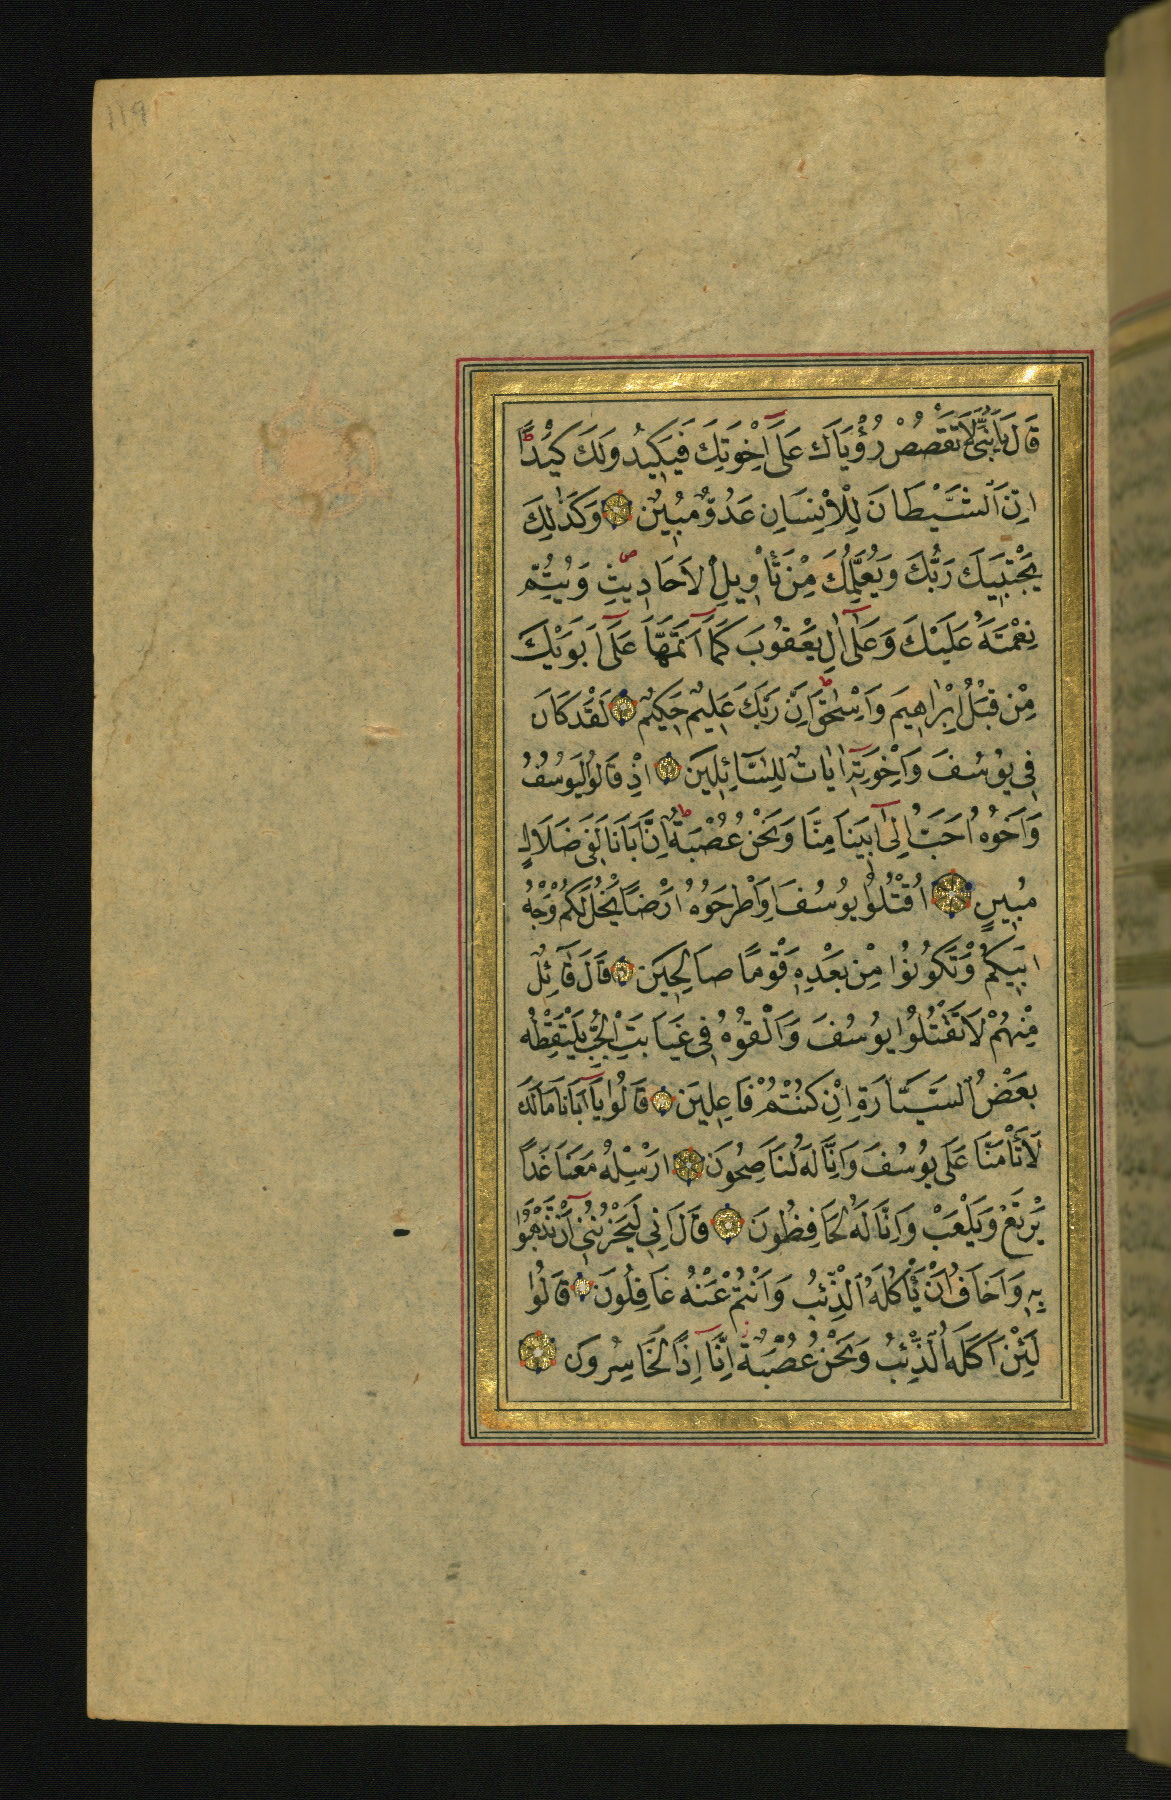 119
قَالَ يَا بُنَيَّ لَا تَقْصُصْ رُؤْيَاكَ عَلَىٰٓ اِخْوَتِكَ فَيَكِيدُوا لَكَ كَيْدًاۜ
اِنَّ الشَّيْطَانَ لِلْاِنْسَانِ عَدُوٌّ مُبِينٌ وَكَذٰلِكَ
يَجْتَبِيكَ رَبُّكَ وَيُعَلِّمُكَ مِنْ تَأْوِيلِ الْاَحَادِيثِ وَيُتِمُّ
نِعْمَتَهُ عَلَيْكَ وَعَلَىٰٓ اٰلِ يَعْقُوبَ كَمَٓا اَتَمَّهَا عَلَىٰٓ اَبَوَيْكَ
مِنْ قَبْلُ اِبْرٰاهِيمَ وَاِسْحٰقَ ط اِنَّ رَبَّكَ عَلِيمٌ حَكِيمٌ لَقَدْ كَانَ
فِي يُوسُفَ وَاِخْوَتِهٓ اٰيَاتٌ لِلسَّٓائِلِينَ اِذْ قَالُوا لَيُوسُفُ
وَاَخُوهُ اَحَبُّ اِلَىٰٓ اَبِينَا مِنَّا وَنَحْنُ عُصْبَةٌ ط اِنَّ اَبَانَا لَفِي ضَلَالٍ
مُبِينٍ اُقْتُلُوا يُوسُفَ اَوِ اطْرَحُوهُ اَرْضًا يَخْلُ لَكُمْ وَجْهُ
اَبِيكُمْ وَتَكُونُوا مِنْ بَعْدِهِ قَوْمًا صَالِحِينَ قَالَ قَٓائِلٌ
مِنْهُمْ لَا تَقْتُلُوا يُوسُفَ وَاَلْقُوهُ فِي غَيَابَتِ الْجُبِّ يَلْتَقِطْهُ
بَعْضُ السَّيَّارَةِ اِنْ كُنْتُمْ فَاعِلِينَ قَالُوا يَٓا اَبَانَا مَا لَكَ
لَا تَأْمَنَّا عَلَى يُوسُفَ وَاِنَّا لَهُ لَنَاصِحُونَ اَرْسِلْهُ مَعَنَا غَدًا
يَرْتَعْ وَيَلْعَبْ وَاِنَّا لَهُ لَحَافِظُونَ قَالَ اِنِّي لَيَحْزُنُنِيٓ اَنْ تَذْهَبُوا
بِهِ وَاَخَافُ اَنْ يَأْكُلَهُ الذِّئْبُ وَاَنْتُمْ عَنْهُ غَافِلُونَ قَالُوا
لَئِنْ اَكَلَهُ الذِّئْبُ وَنَحْنُ عُصْبَةٌ اِنَّٓا اِذًا لَخَاسِرُونَ